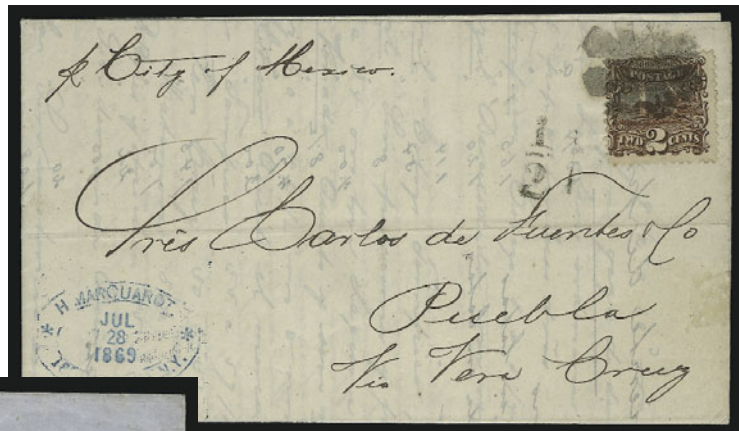 p City of Mexico.
POSTAGE
TWO 2 CENTS
Srés Carlos de Fuentes & Co
Puebla
Via Vera Cruz
H MARQUARDT
JUL
28
1869
N.Y.